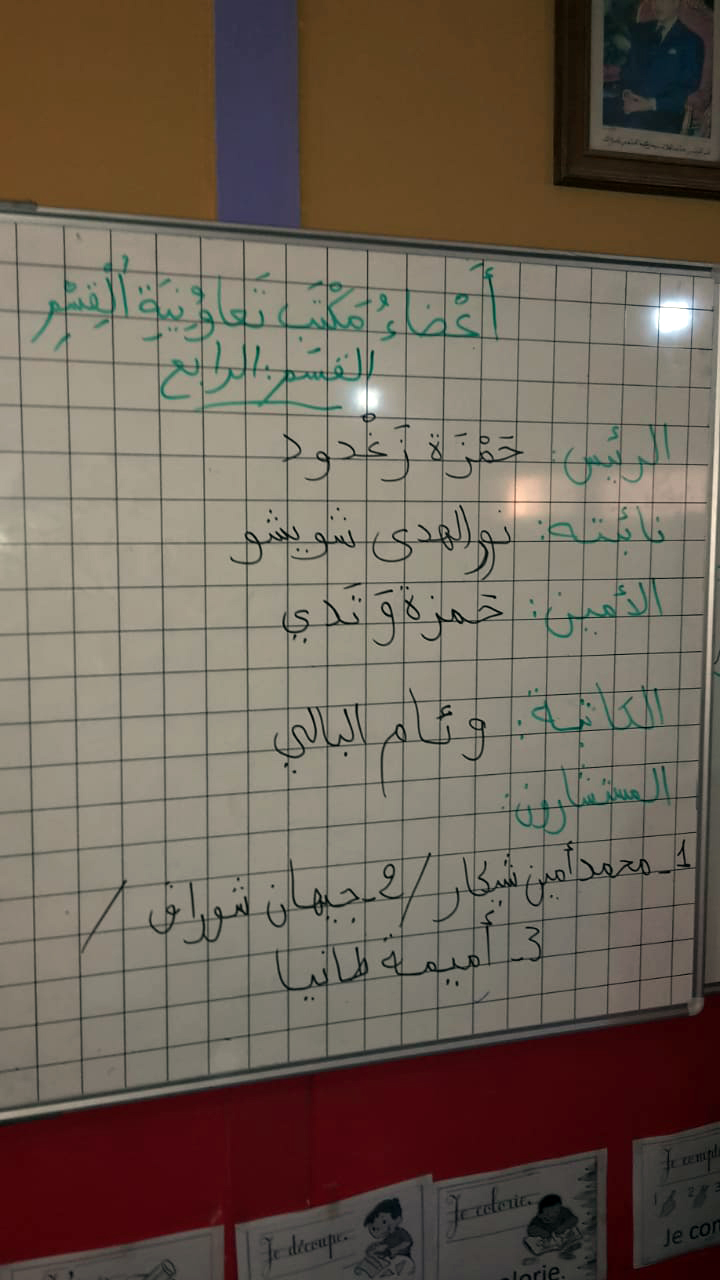 أَعْضاءُ مَكْتَبِ تَعاوُنِيَةِ الْقِسْمِ
القسم: الرابع
الرئيس: حَمْزَة زَغْدود
نائبته: نور الهدى شويشو
الأمين: حَمزة وَنَدي
الكاتبة: وئام البالي
المستشارون:
1_ محمد أمين شكار / 2_ جيهان شوراق /
3_ أميمة طانيا
Je découpe.
Je colorie.
colorie.
Je compt
1 2 3
Je con